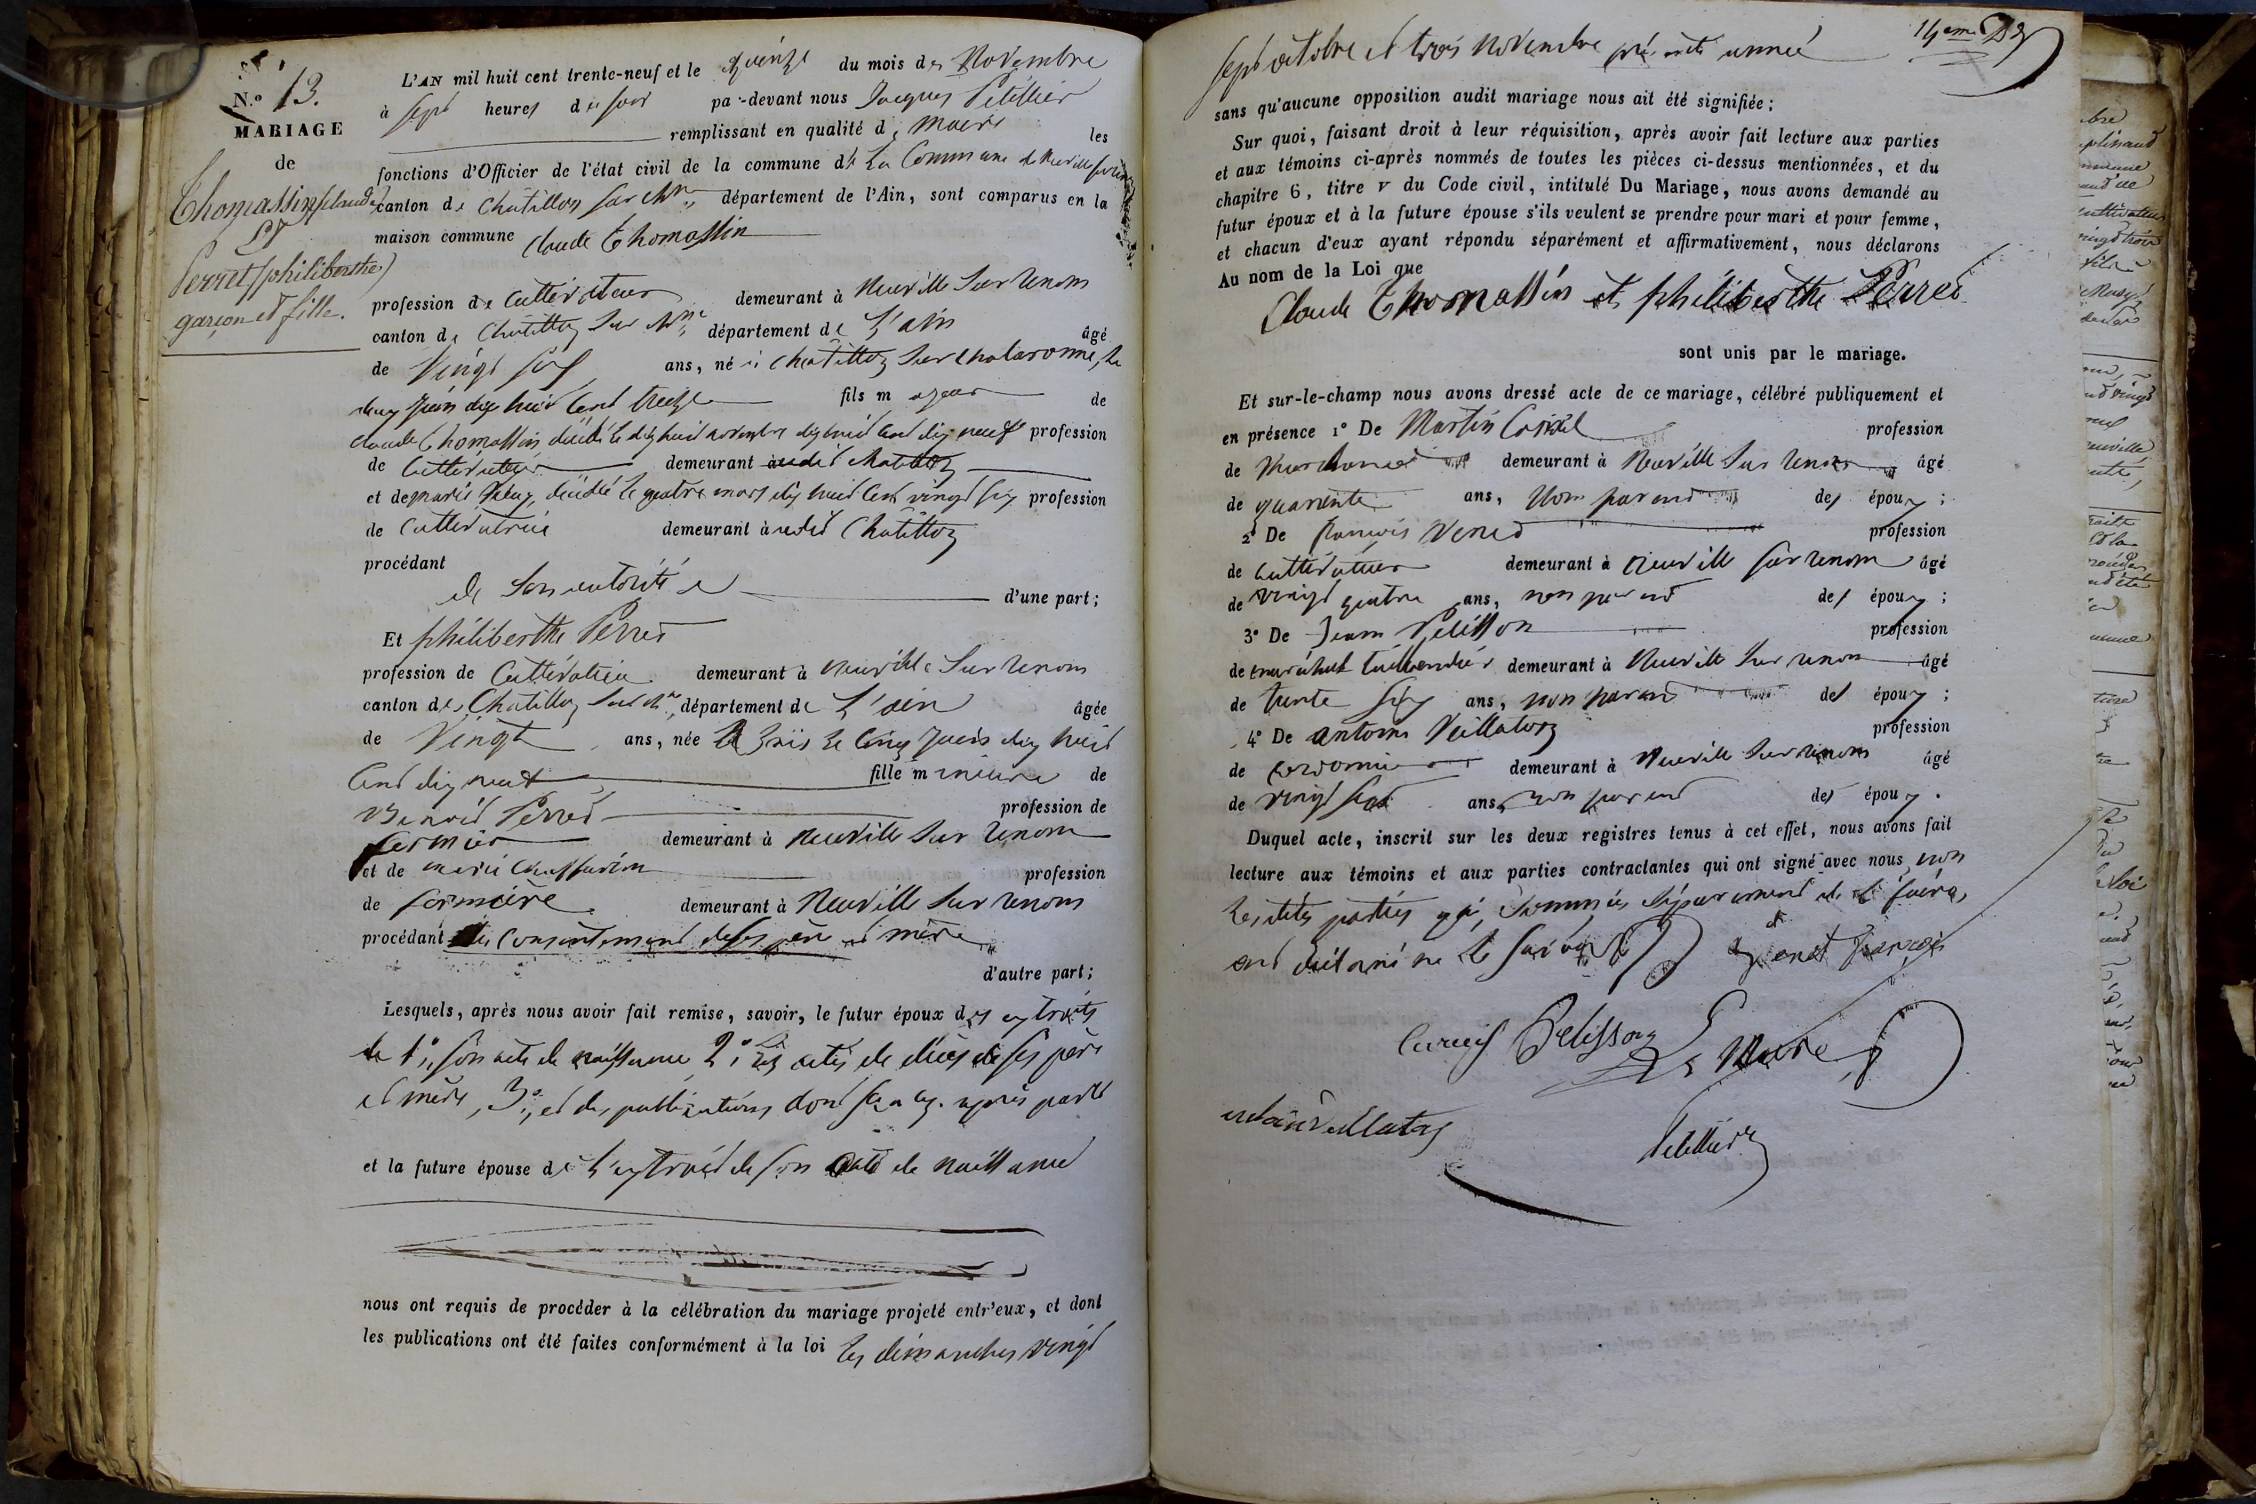 N.° 13.
MARIAGE
de
Thomassin (Claude)
et
Perret (philiberthe)
garçon et fille.
L'AN mil huit cent trente-neuf et le quinze du mois de Novembre
à sept heures du soir par-devant nous Jacques Pelletier
remplissant en qualité de maire les
fonctions d'Officier de l'état civil de la commune de La Commune de Neuville sur renom
canton de Chatillon sur Chne département de l'Ain, sont comparus en la
maison commune Claude Thomassin
profession de Cultivateur demeurant à Neuville Sur renom
canton de Chatillon Sur Chne département de L'ain âgé
de Vingt six ans, né à Chatillon Sur Chalaronne, le
deux Juin dix huit Cent treize fils majeur de
Claude Thomassin décédé le dix huit novembre dix huit Cent dix neuf profession
de Cultivateur demeurant audit Chatillon
et de marie décédée le quatre mars dix huit Cent vingt six profession
de Cultivatrice demeurant audit Chatillon
procédant
de Son autorité d'une part;
Et philiberthe Perret
profession de Cultivatrice demeurant à Neuville Sur renom
canton de Chatillon Sur Chne département de L'ain âgée
de Vingt ans, née le Cinq Juin dix huit
Cent dix neuf fille mineure de
Benoit Perret profession de
fermier demeurant à Neuville Sur Renom
et de marie Chaffurin profession
de fermière demeurant à Neuville Sur renom
procédant du Consentement de ses père et mère
d'autre part;
Lesquels, après nous avoir fait remise, savoir, le futur époux des extraits
de 1° Son acte de naissance 2° des actes de décès de ses père
et mère, 3° et des publications dont sera cy. après parlé
et la future épouse de L'extrait de son acte de naissance
nous ont requis de procéder à la célébration du mariage projeté entr'eux, et dont
les publications ont été faites conformément à la loi les dimanches vingt
sept octobre et trois Novembre présente année
sans qu'aucune opposition audit mariage nous ait été signifiée;
Sur quoi, faisant droit à leur réquisition, après avoir fait lecture aux parties
et aux témoins ci-après nommés de toutes les pièces ci-dessus mentionnées, et du
chapitre 6, titre V du Code civil, intitulé Du Mariage, nous avons demandé au
futur époux et à la future épouse s'ils veulent se prendre pour mari et pour femme,
et chacun d'eux ayant répondu séparément et affirmativement, nous déclarons
Au nom de la Loi que
Claude Thomassin et philiberthe Perret
sont unis par le mariage.
Et sur-le-champ nous avons dressé acte de ce mariage, célébré publiquement et
en présence 1° De Martin profession
de Marchand demeurant à Neuville Sur renom âgé
de quarante ans, Non parent des époux;
2° De François Venet profession
de Cultivateur demeurant à Neuville sur renom âgé
de vingt quatre ans, non parent des époux;
3° De Jean Pelisson profession
de marechal taillandier demeurant à Neuville Sur renom âgé
de trente six ans, non parent des époux;
4° De antoine Veillaton profession
de cordonnier demeurant à Neuville Sur renom âgé
de vingt sept ans, non parent des époux.
Duquel acte, inscrit sur les deux registres tenus à cet effet, nous avons fait
lecture aux témoins et aux parties contractantes qui ont signé avec nous non
les dites parties qui, Sommées séparement de le faire,
ont déclaré ne le Savoir Venet françois
Pelisson Le Maire
Pelletier